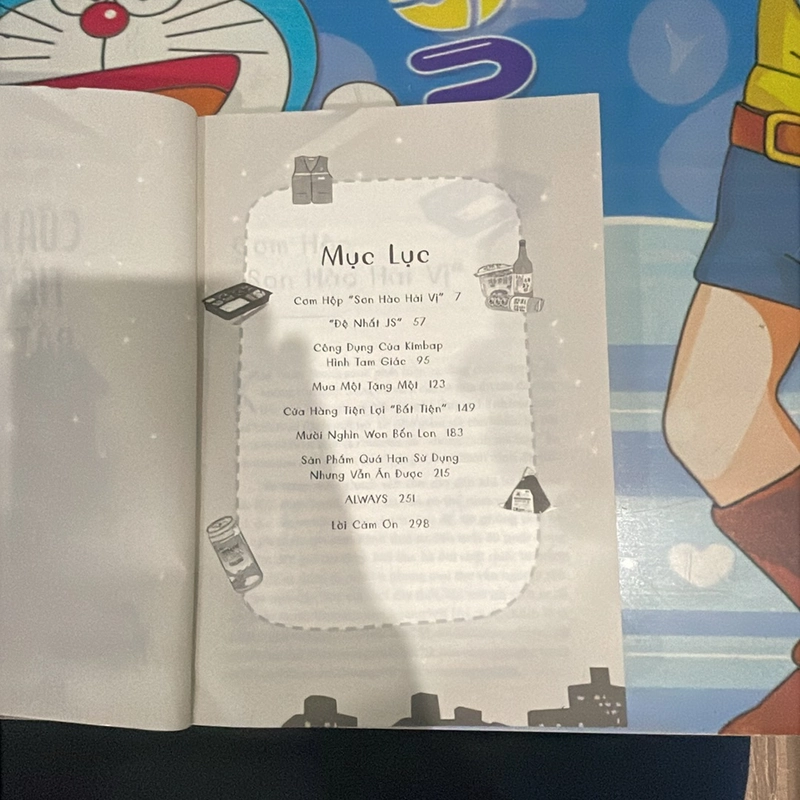 Mục Lục
Cơm Hộp "Sơn Hào Hải Vị" 7
"Đệ Nhất JS" 57
Công Dụng Của Kimbap
Hình Tam Giác 95
Mua Một Tặng Một 123
Cửa Hàng Tiện Lợi "Bất Tiện" 149
Mười Nghìn Won Bốn Lon 183
Sản Phẩm Quá Hạn Sử Dụng
Nhưng Vẫn Ăn Được 215
ALWAYS 251
Lời Cảm Ơn 298